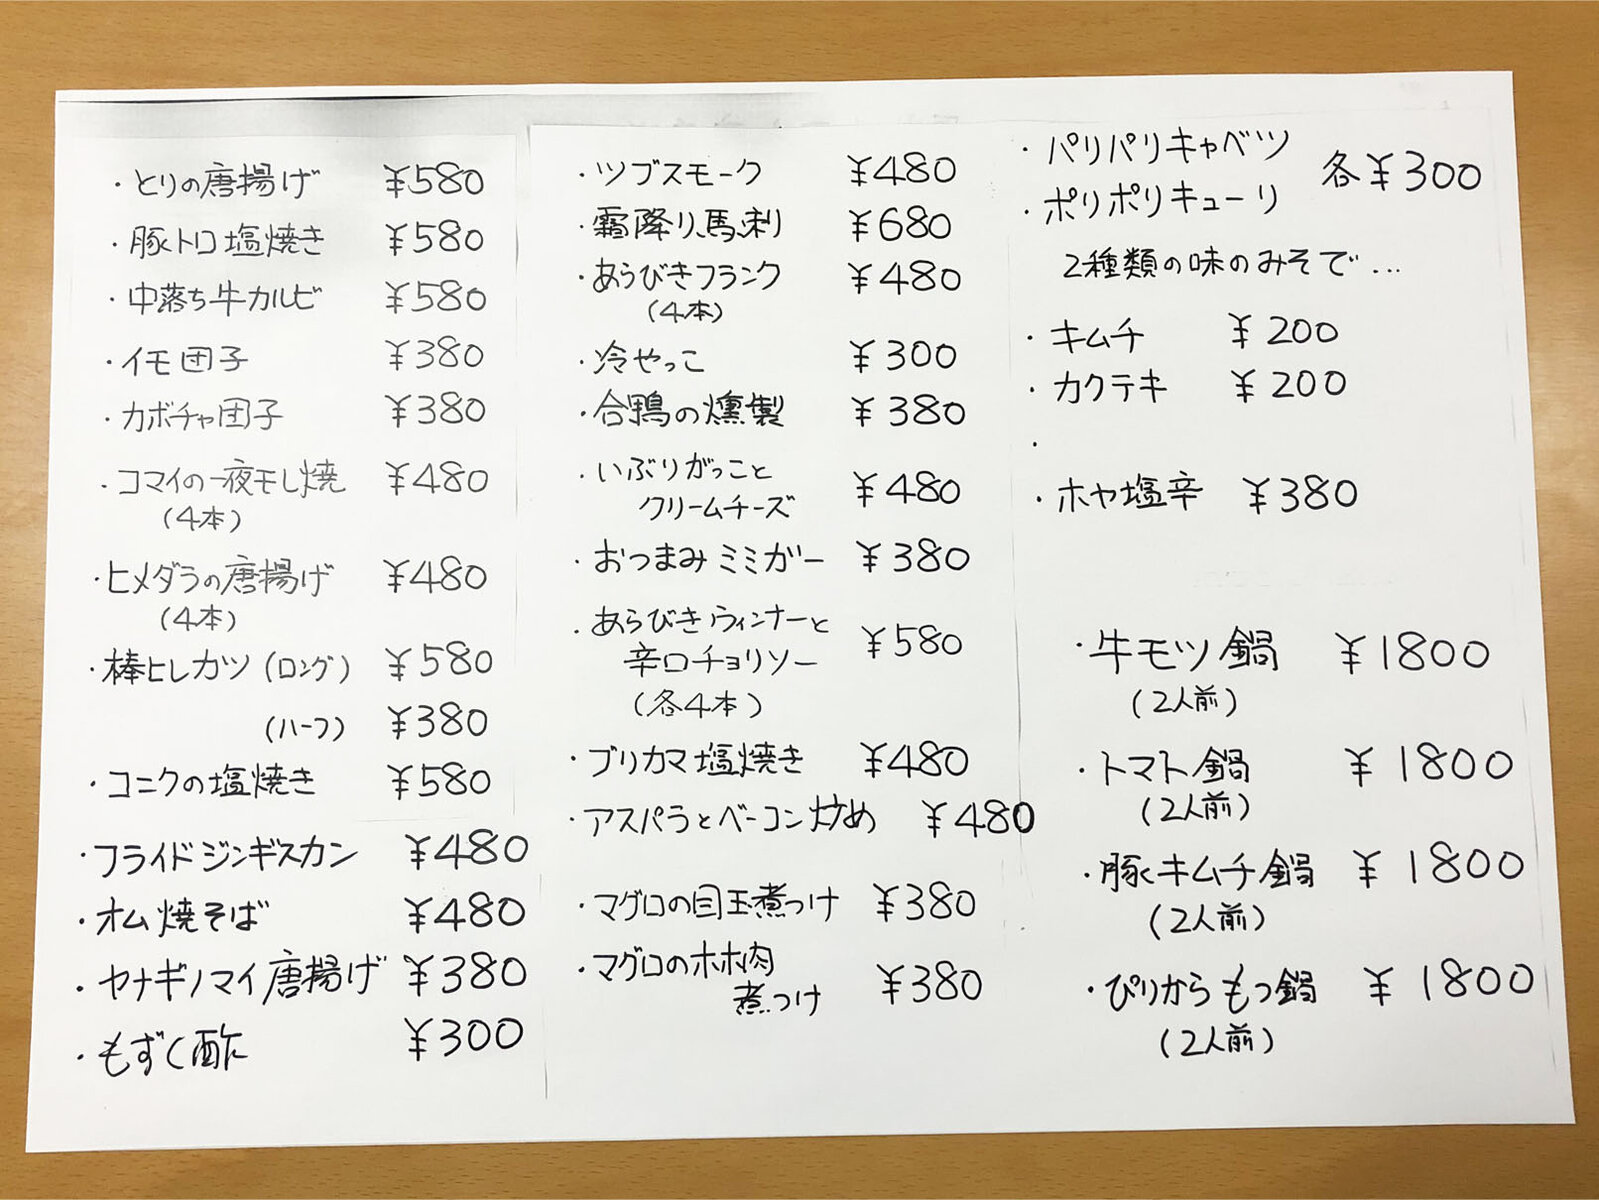 ・とりの唐揚げ ¥580
・豚トロ塩焼き ¥580
・中落ち牛カルビ ¥580
・イモ団子 ¥380
・カボチャ団子 ¥380
・コマイの一夜干し焼 ¥480
(4本)
・ヒメダラの唐揚げ ¥480
(4本)
・棒ヒレカツ (ロング) ¥580
(ハーフ) ¥380
・コニクの塩焼き ¥580
・フライドジンギスカン ¥480
・オム焼そば ¥480
・ヤナギノマイ唐揚げ ¥380
・もずく酢 ¥300
・ツブスモーク ¥480
・霜降り馬刺 ¥680
・あらびきフランク ¥480
(4本)
・冷やっこ ¥300
・合鴨の燻製 ¥380
・いぶりがっこと
クリームチーズ ¥480
・おつまみミミガー ¥380
・あらびきウィンナーと
辛口チョリソー ¥580
(各4本)
・ブリカマ塩焼き ¥480
・アスパラとベーコン炒め ¥480
・マグロの目玉煮つけ ¥380
・マグロのホホ肉
煮つけ ¥380
・パリパリキャベツ
・ポリポリキューリ 各¥300
2種類の味のみそで...
・キムチ ¥200
・カクテキ ¥200
・
・ホヤ塩辛 ¥380
・牛モツ鍋 ¥1800
(2人前)
・トマト鍋 ¥1800
(2人前)
・豚キムチ鍋 ¥1800
(2人前)
・ぴりからもつ鍋 ¥1800
(2人前)